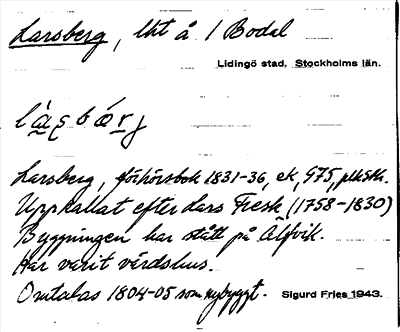 Larsberg, lht å 1 Bodal
Lidingö stad, Stockholms län.
Larsberg, förhörsbok 1831-36, ek, 975,
Uppkallat efter Lars Fresk (1758-1830)
Byggningen har stått på Alfvik.
Har varit värdshus.
Omtalas 1804-05 som nybyggt.
Sigurd Fries 1943.